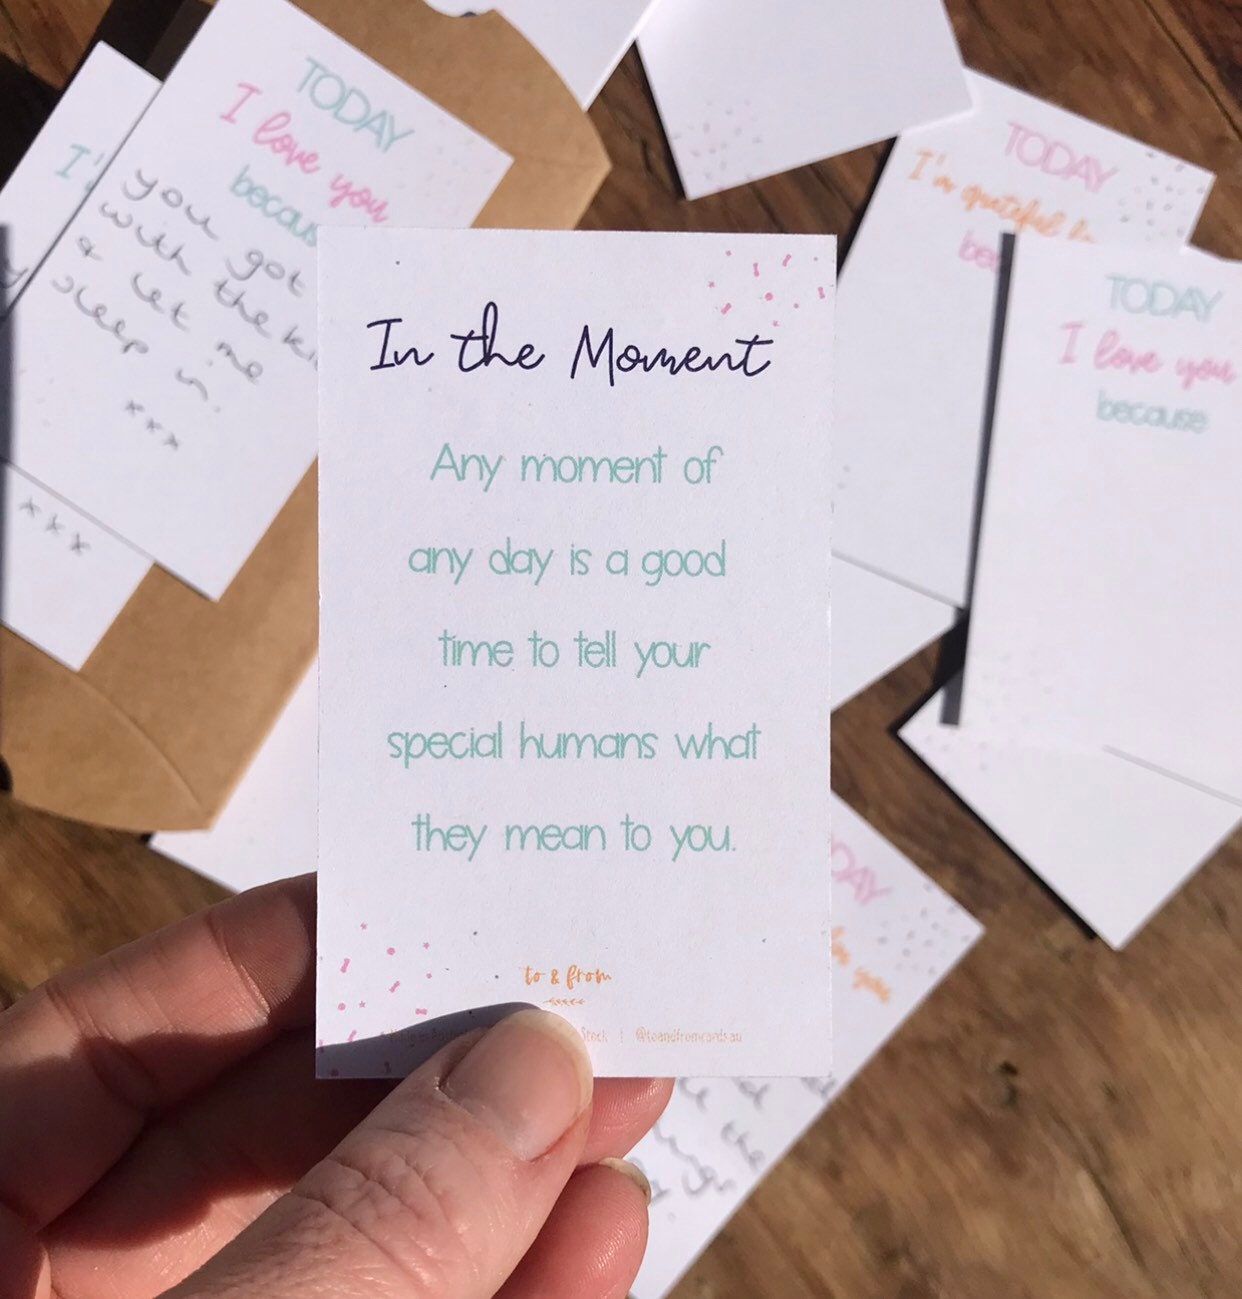 In the Moment
Any moment of
any day is a good
time to tell your
special humans what
they mean to you.
to & from
Stock | @toandfromcards.au
TODAY
I love you
you got
with the
& let me
sleep in.
xxx
xxx
TODAY
I'm grateful
TODAY
I love you
because
you
the